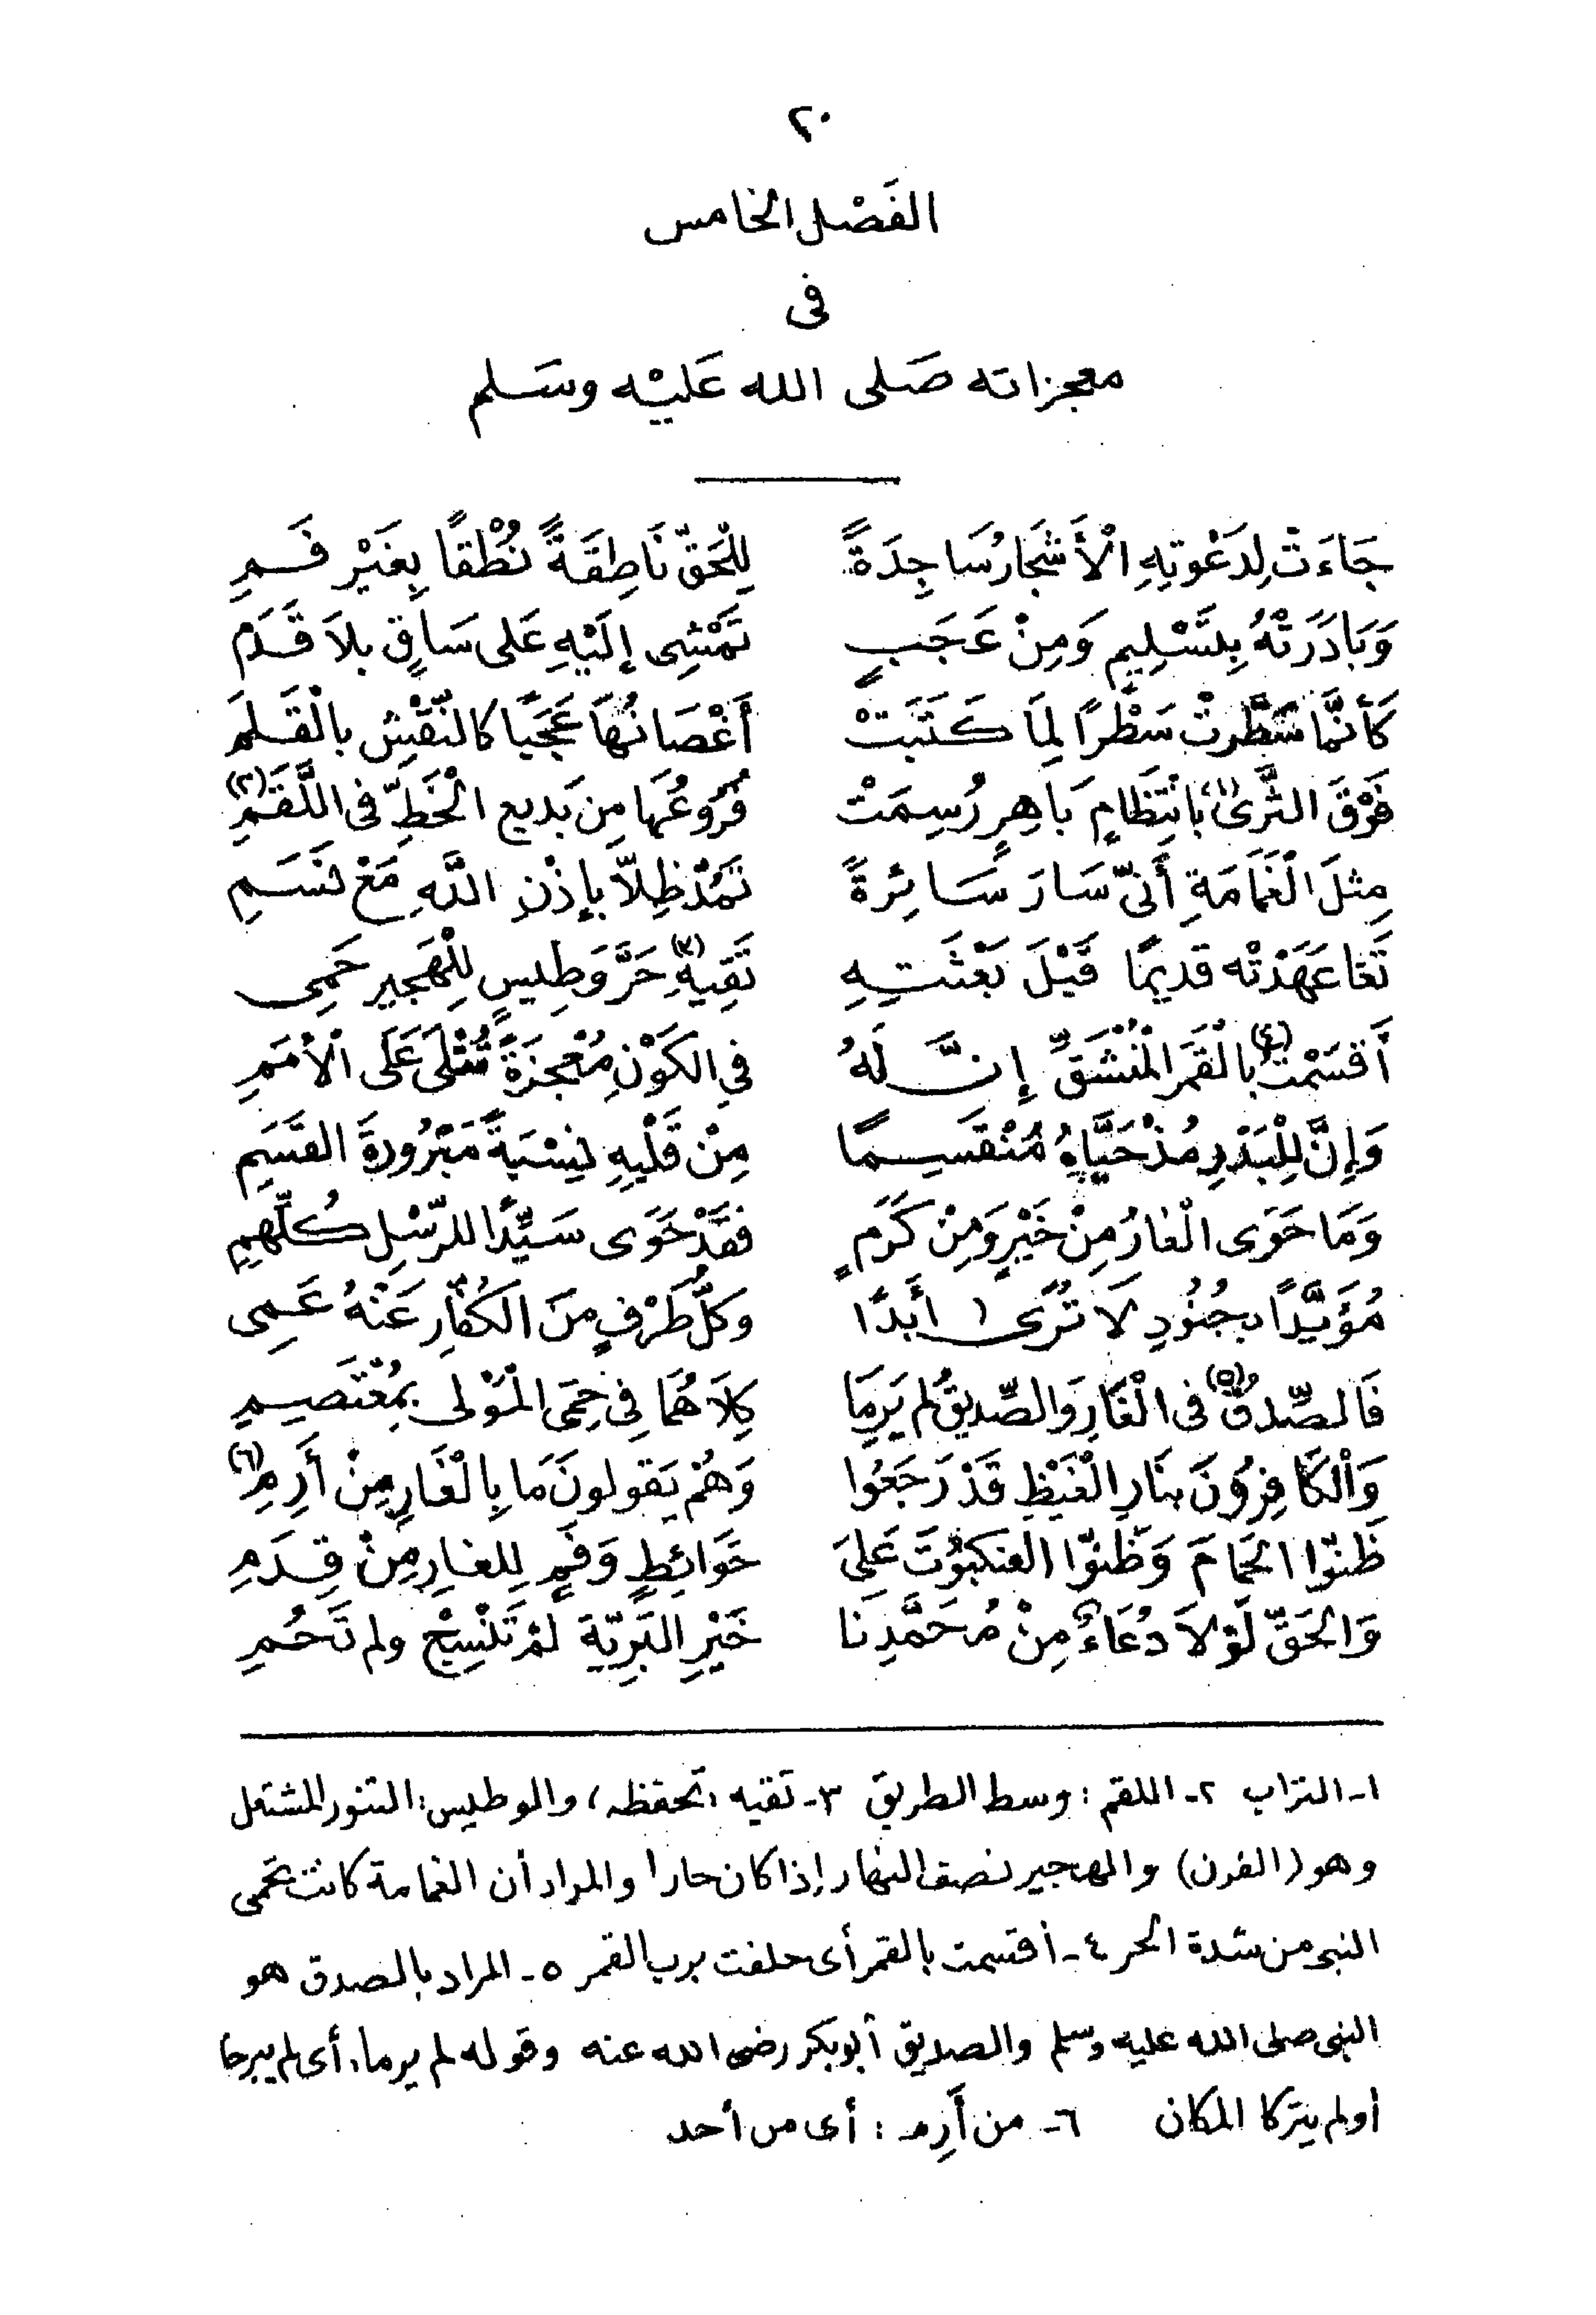 ٢٠
الفَصْل الخامس
فى
معجزاته صَلى الله عَليْه وسَلم
جَاءَتْ لِدَعْوتِهِ الْأَشْجَارُ سَاجِدَةً لِلْحَقِّ نَاطِقَةً نُطْقًا بِغَيْرِ فَمِ
وَبَادَرَتْهُ بِتَسْلِيمٍ وَمِنْ عَجَبٍ تَمْشِى إلَيْهِ عَلى سَاقٍ بلاَ قَدَمِ
كَأنَّمَّا سَطَّرتْ سَطْرًا لِمَا كَتَبَتْ أَغْصَانُهَا عَجَبًا كالنَّقْشِ بالْقَلَمِ
فَوْقَ الثَّرىٰ (١) بانْتِظَامٍ بَاهِرٍ رُسِمَتْ فُرُوعُهَا مِن بَديعِ الْخَطِّ فى اللَّقَمِ (٢)
مِثلَ الْغَمَامَةِ أَنّى سَارَ سَائِرةً تَمُدّ ظِلّا بإذْنِ اللَّهِ مَعْ نَسَمِ
تَعَاعَهَدَتْه قديمًا قَبْلَ بَعْثَتِهِ تَقِيهِ (٣) حَرَّ وَطِيسٍ لِلْهَجيرِ حَمِى
أَقسَمْتُ (٤) بالْقَمَرِ الْمُنْشَقِّ إنَّ لَهُ فِي الكَوْنِ مُعْجِزَةً تُتْلَى عَلَى الْأمَمِ
وَإنَّ لِلْبَدْرِ مُذْ حَيَّاهُ مُنْقَسِمًا مِنْ قَلْبِهِ نِسْبَةً مَبْرُورةَ القَسَمِ
وَمَا حَوَى الْغارُ مِنْ خَيْرٍ وَمِنْ كَرَمٍ فَقَدْ حَوَى سَيِّدًا للرّسْلِ كُلِّهِمِ
مُؤَيَّدًا بجُنُودٍ لَا تُرَى ا أَبَدًا وَكُلُّ طَرْفٍ مِنَ الكُفّارِ عَنْهُ عَمِى
فَالصِّدقُ (٥) فى الْغَارِ وَالصِّديقُ لم يَرِمَا كِلاَهُمَا فِى حِمَى الْمَوْلى بمُعْتَصِمِ
وَالْكَافِرُونَ بنَارِ الْغَيْظِ قَدْ رَجَعُوا وَهُمْ يَقولونَ مَا بِالْغَارِ مِنْ أَرِمِ (٦)
ظَنّوا الحَمَامَ وَظَنوّا العنكبُوتَ عَلىَ حَوَائِطٍ وَفَمٍ لِلغارِ مِنْ قِدَمِ
وَالحَقّ لَوْلاَ دُعَاءٌ مِنْ مُحَمَّدِنَا خَيْرِ البَرِيّةِ لَمْ تَنْسِجْ ولم تَحُمِ
١- التراب ٢- اللقم : وسط الطريق ٣- تقيه : تحفظه ، والوطيس : التنور المشتعل
وهو (الفرن) والهجير نصف النهار إذا كان حارا والمراد أن الغمامة كانت تحمى
النبى من شدة الحر ٤- أقسمت بالقمر أى حلفت برب القمر ٥- المراد بالصدق هو
النبى صلى الله عليه وسلم والصديق أبو بكر رضى الله عنه وقوله لم يرما : أى لم يبرحا
أو لم يتركا المكان ٦- من أَرِم : أى من أحد